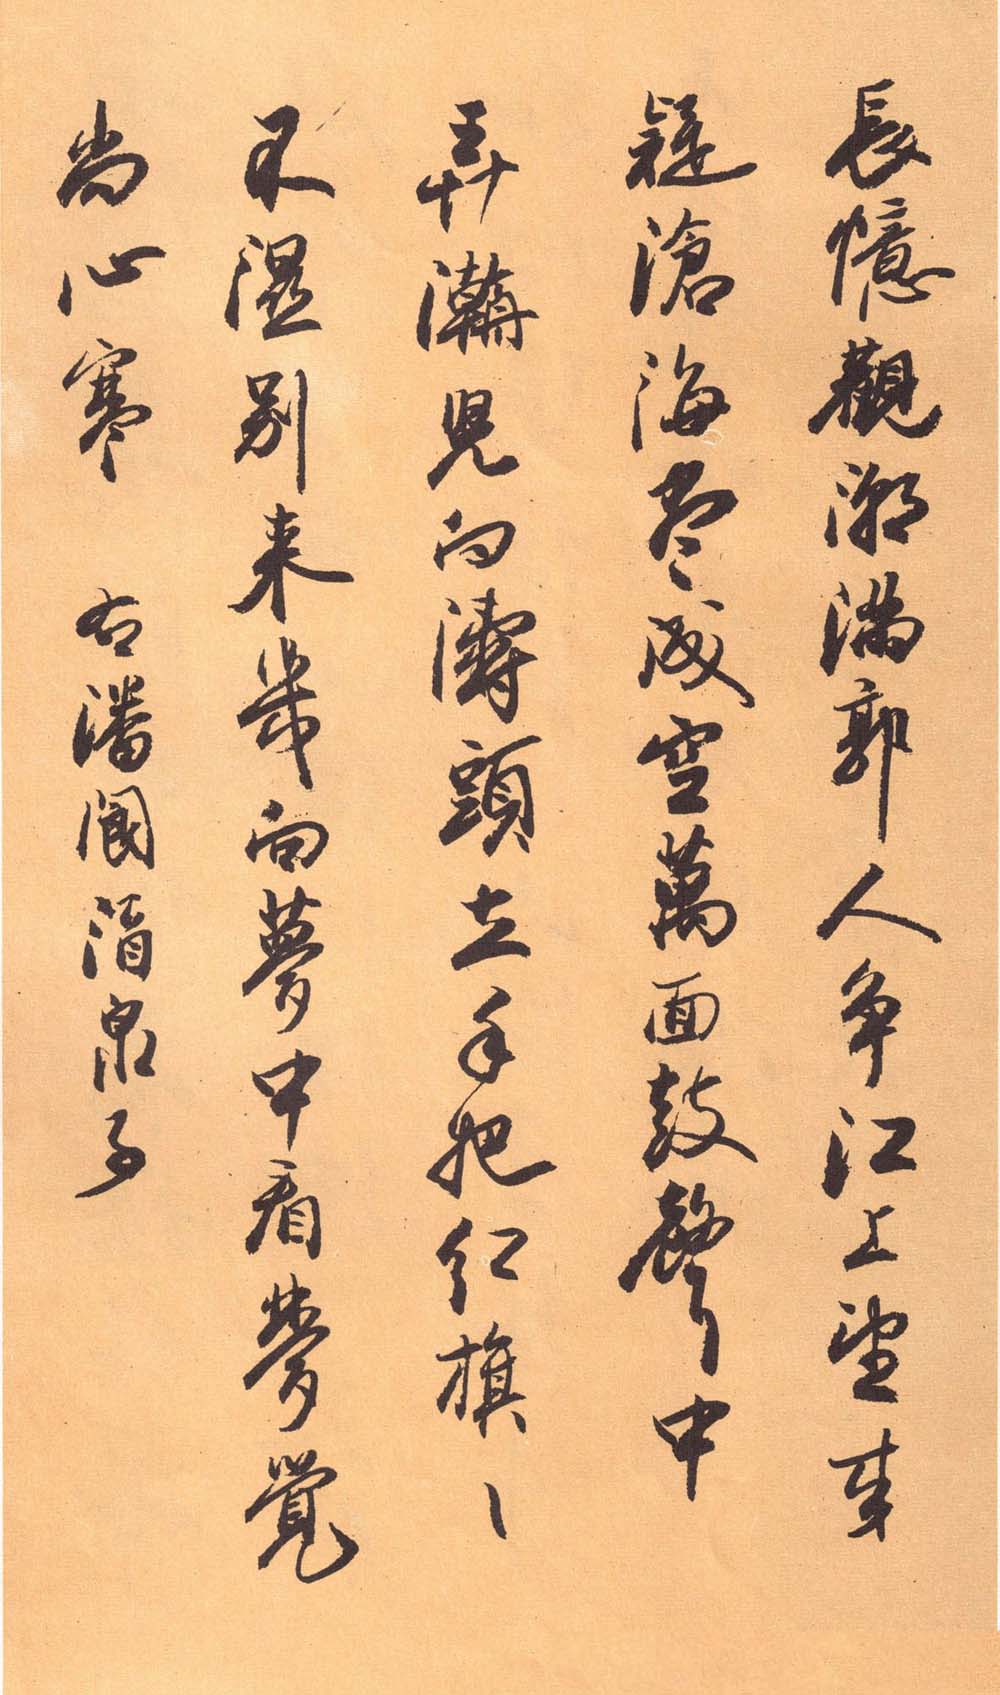 長憶觀潮滿郭人爭江上望來
疑滄海盡成空萬面鼓聲中
弄潮兒向濤頭立手把紅旗〻
不濕別来幾向夢中看夢覺
尚心寒 右潘閬酒泉子